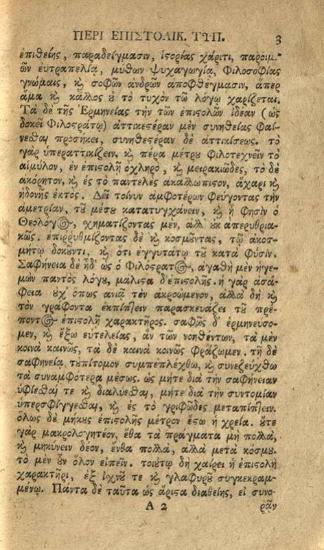 ΠΕΡΙ ΕΠΙΣΤΟΛΙΚ. ΤΥΠ. 3
ἐπιθείης, παραδείγμασιν, ἱστορίας χάριτι, παροιμι-
ῶν εὐτραπελίᾳ, μύθων ψυχαγωγίᾳ, Φιλοσοφίας
γνώμαις, κ̀ σοφῶν ἀνδρῶν ἀποφθέγμασιν, ἅπερ
ἅμα κ̀ κάλλους τὸ τυχὸν τῷ λόγῳ χαρίζεται.
Τὰ δὲ τῆς Ἑρμηνείας τὴν τῶν ἐπιστολῶν ἰδέαν (ὡς
δοκεῖ Φιλοστράτῳ) ἀττικετέραν μὲν συνηθείας Φαί-
νεσθαι προσήκει, συνηθεστέραν δὲ ἀττικίσεως. τὸ
γὰρ ὑπεραττικίζειν, κ̀ πέρα μέτρου Φιλοτεχνεῖν τὸ
αἴμυλον, ἐν ἐπιστολῇ ὀχληρὸ, κ̀ μειρακιῶδες, τὸ δὲ
ἀκόρητον, κ̀ ἐς τὸ παντελὲς ἀκαλλώπιστον, ἄχαρι κ̀
ἡδονῆς ἐκτός. Δεῖ τοίνυν ἀμφοτέρων Φεύγοντας τὴν
ἀμετρίαν, τοῦ μέσου κατατυγχάνειν, κ̀ ᾗ Φησὶν ὁ
Θεολόγος, χηματίζοντας μὲν, ἀλλ' ὡς ἀπερυθρια-
κῶς. ἐπιῤῥυθμίζοντας δὲ κ̀ κοσμοῦντας, τῷ ἀκοσ-
μήτῳ δοκοῦντι, κ̀ ὅτι ἐγγυτάτω τοῦ κατὰ Φύσιν.
Σαφήνεια δὲ ἤδ' ὡς ὁ Φιλόστρατος, ἀγαθὴ μὲν ἡγε-
μὼν παντὸς λόγου, μάλιστα δ' ἐπιστολῆς. ἡ γὰρ ἀσά-
φεια οὐχ ὅπως ἀνιᾷ τὸν ἀκροώμενον, ἀλλὰ δὴ κ̀
τὸν γράφοντα ἐκπίπτειν παρασκευάζει τοῦ πρέ-
ποντος ἐπιστολῇ χαρακτῆρος. σαφῶς δ' ἑρμηνεύσο-
μεν, κ̀ ἔξω εὐτελείας, ἂν τῶν νοηθέντων, τὰ μὲν
κοινὰ καινῶς, τὰ δὲ καινὰ κοινῶς Φράζωμεν. τῇ δὲ
σαφηνείᾳ, τοὐπίτομον συμπεπλέχθω, κ̀ συνεζεύχθω
τὰ συναμφότερα μέσως. ὡς μήτε διὰ τὴν σαφήνειαν
ὑφίεσθαί τε κ̀ διαλύεσθαι, μήτε διὰ τὴν συντομίαν
ὑπερσφίγγεσθαι, κ̀ ἐς τὸ γριφῶδες μεταπίπτειν.
ὅλως δὲ μήκους ἐπιστολῆς μέτρον ἔστω ἡ χρεία. οὔτε
γὰρ μακρολογητέον, ἔνθα τὰ πράγματα μὴ πολλὰ,
κ̀ μηκύνειν δέον, ἔνθα πολλὰ, ἀλλὰ μετὰ κοσμου.
τὸ μὲν οὖν ὅλον εἰπεῖν. τοιούτῳ δὴ χαίρει ἡ ἐπιστολὴ
χαρακτῆρι, ἐξ ἰχνοῦ τε κ̀ γλαφυροῦ συγκεκραμ-
μένῳ. Πάντα δὲ ταῦτα ὡς ἄριστα διαθείης, εἰ συνο-
Α 2 ρᾶν